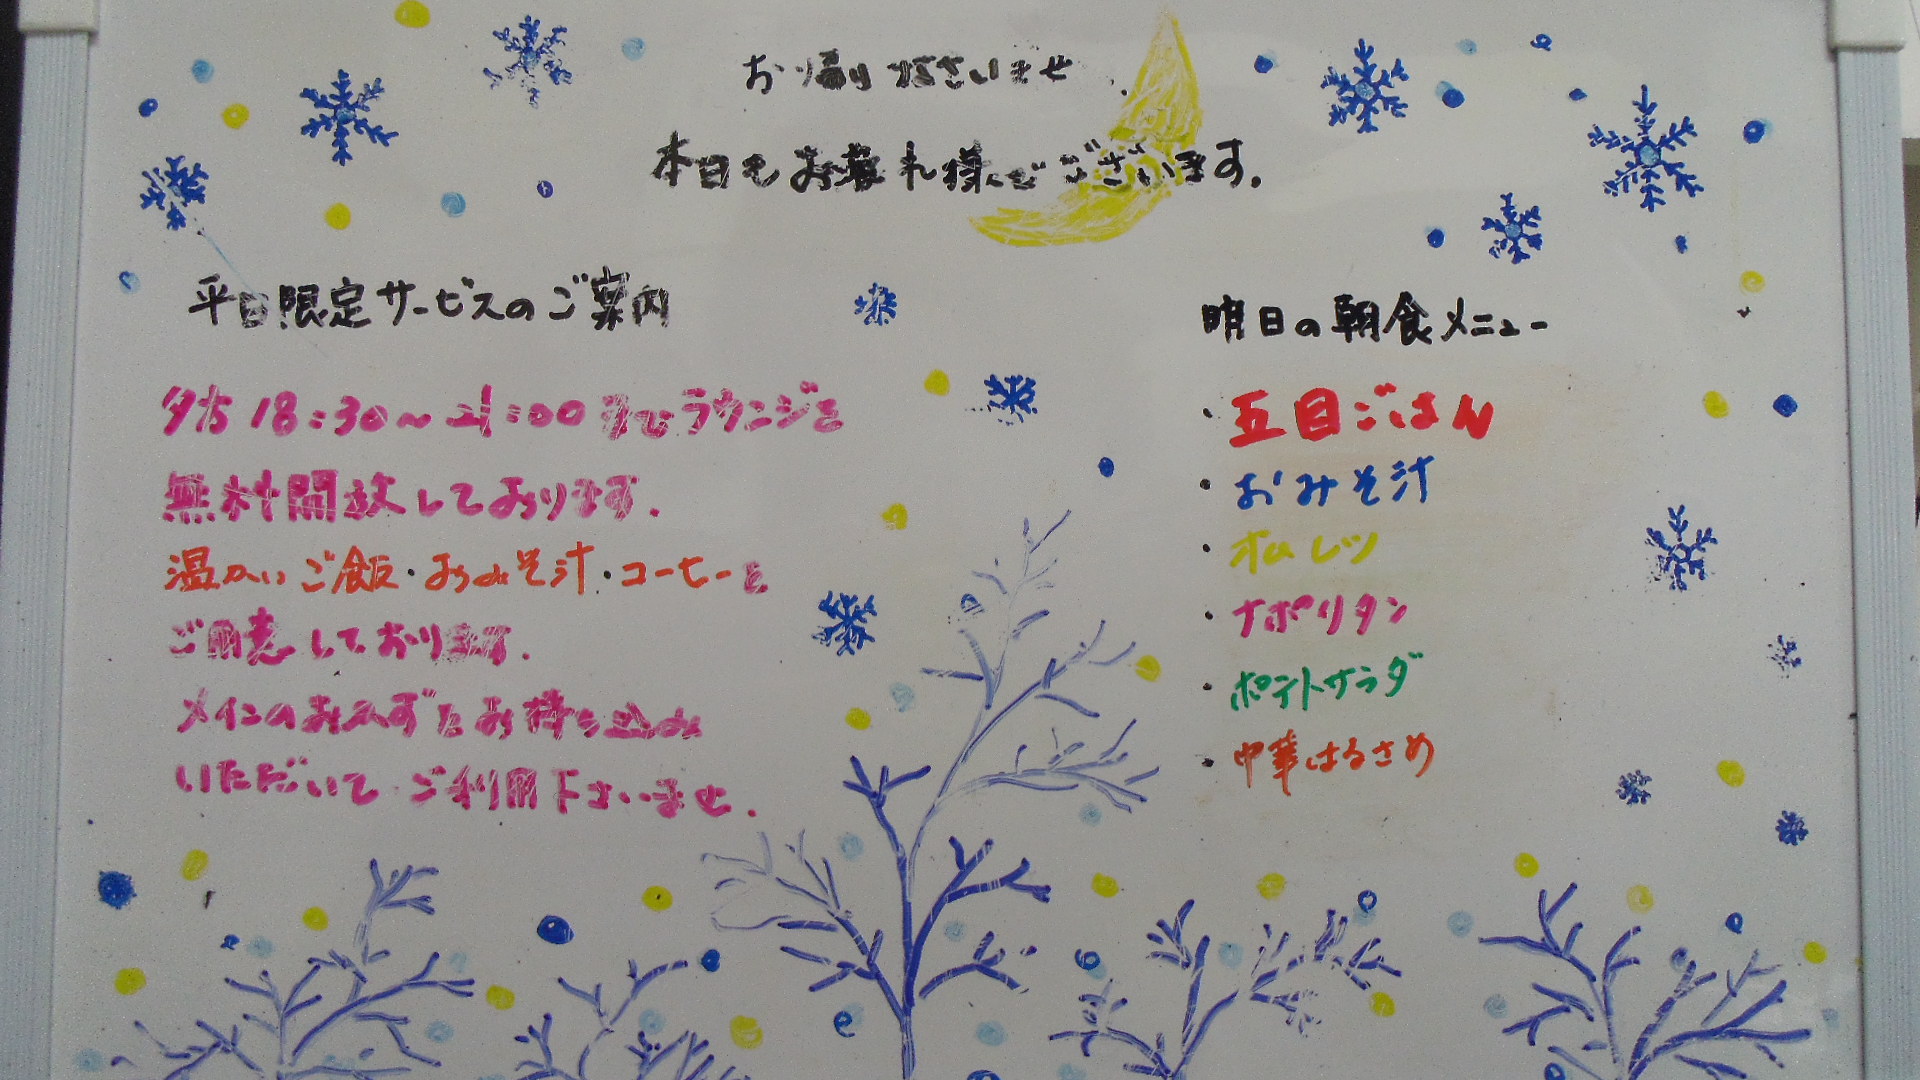 お帰りなさいませ
本日もお疲れ様でございます。
平日限定サービスのご案内
夕方 18:30〜21:00までラウンジを
無料開放しております。
温かいご飯・おみそ汁・コーヒーを
ご用意しております。
メインのおかずをお持ち込み
いただいて ご利用下さいませ.
明日の朝食メニュー
・五目ごはん
・おみそ汁
・オムレツ
・ナポリタン
・ポテトサラダ
・中華はるさめ